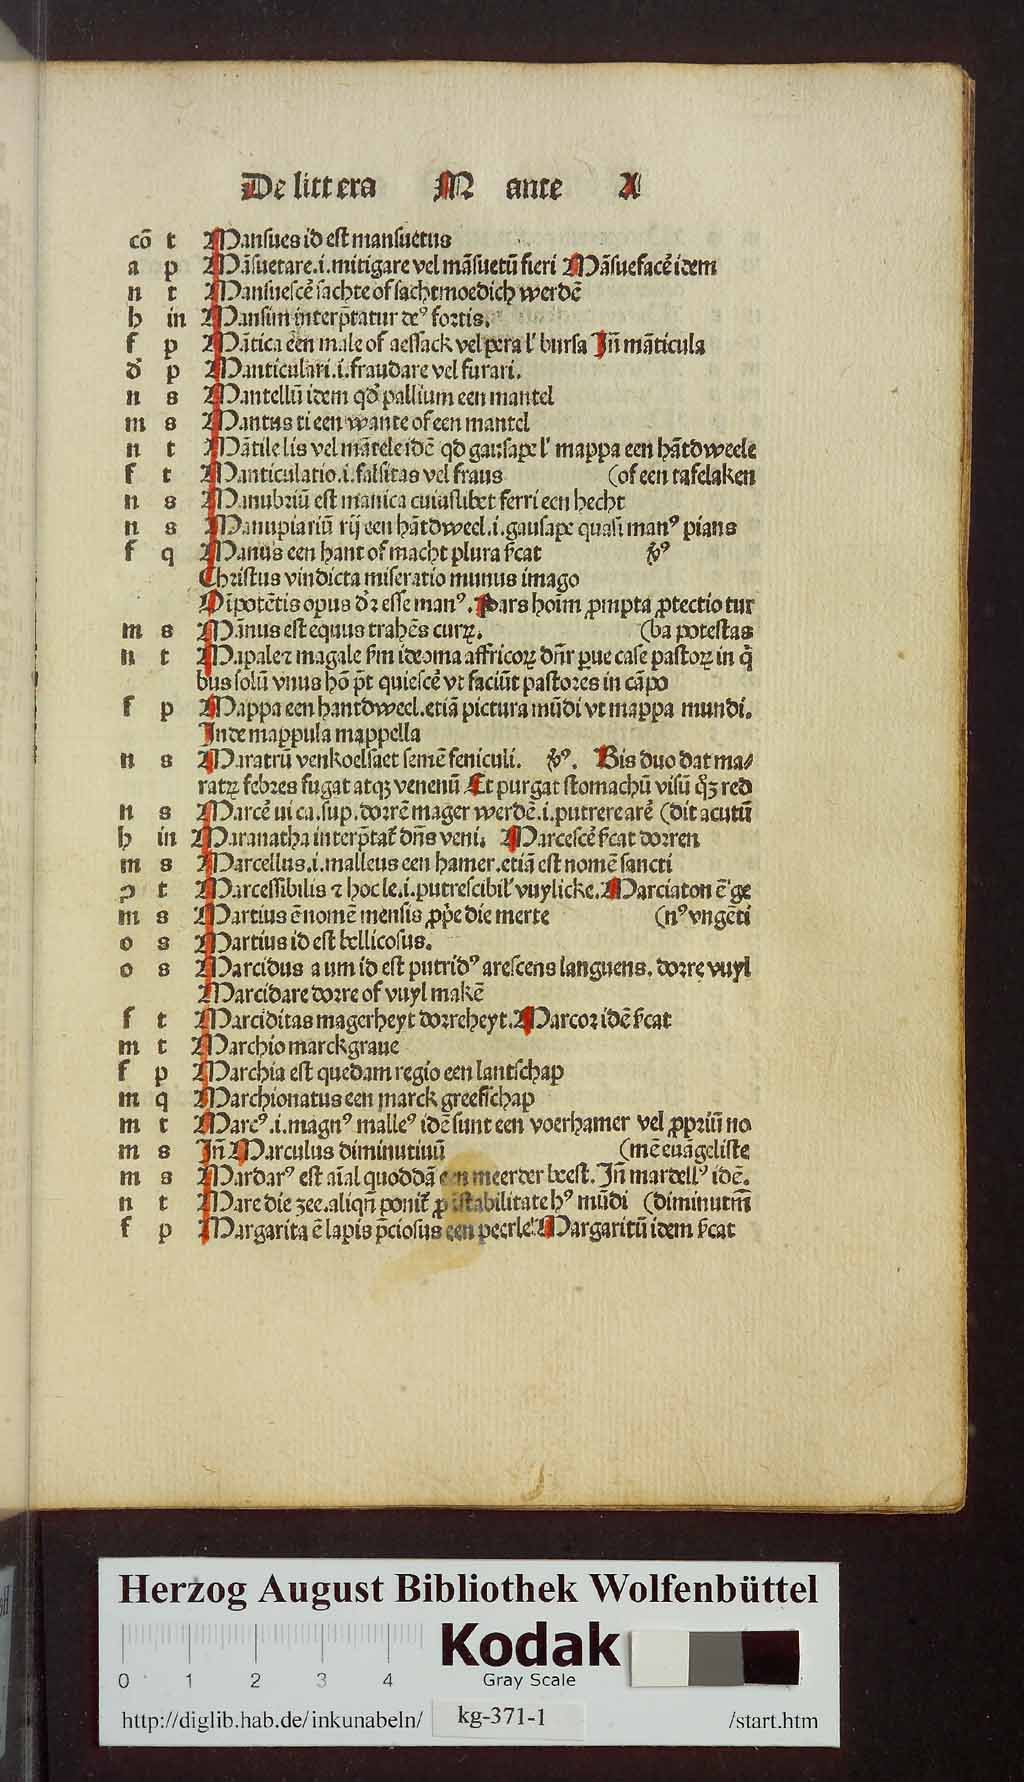 De littera M ante A
cõ t Mansues id est mansuetus
a p Mãsuetare.i.mitigare vel mãsuetũ fieri Mãsuefacẽ idem
n t Mansuescẽ sachte of sachtmoedich werdẽ
h in Mansim interp̃tatur deꝰ fortis.
f p Mãtica een male of aessack vel pera lʼ bursa Jn̄ mãticula
d̓ p Manticulari.i.fraudare vel furari.
n s Mantellũ idem qd̓ pallium een mantel
m s Mantus ti een wante of een mantel
n t Mãtile lis vel mãtele idẽ qd gausape lʼ mappa een hãtdweele
f t Manticulatio.i.falsitas vel fraus (of een tafelaken
n s Manubriũ est manica cuiuslibet ferri een hecht
n s Manupiariũ rij een hãtdweel.i.gausape quasi manꝰ pians
f q Manus een hant of macht plura s̃cat ꝟꝰ
Christus vindicta miseratio munus imago
Oĩpotẽtis opus d̓ꝛ esse manꝰ. Pars hoĩm ꝓmpta ꝓtectio tur
m s Mãnus est equus trahẽs curꝝ. (ba potestas
n t Mapale ꝛ magale s̃m ideoma affricoꝝ dn̄r ꝑue case pastoꝝ in q̃
bus solũ vnus hõ p̃t quiescẽ vt faciũt pastores in cãpo
f p Mappa een hantdweel.etiã pictura mũdi vt mappa mundi.
Inde mappula mappella
n s Maratrũ venkoelsaet semẽ feniculi. ꝟꝰ. Bis duo dat ma⸗
ratꝝ febres fugat atqꝫ venenũ Et purgat stomachũ visũ qͦꝫ red
n s Marcẽ ui ca.sup.dorrẽ mager werdẽ.i.putrere arẽ (dit acutũ
h in Maranatha interp̃tat᷑ dñs veni. Marcescẽ s̃cat dorren
m s Marcellus.i.malleus een hamer.etiã est nomẽ sancti
ꝯ t Marcessibilis ꝛ hoc le.i.putrescibilʼ vuylicke. Marciaton ẽ ge
m s Martius ẽ nomẽ mensis ꝓp̃e die merte (nꝰ vngẽti
o s Martius id est bellicosus.
o s Marcidus a um id est putridꝰ arescens languens. dorre vuyl
Marcidare dorre of vuyl makẽ
f t Marciditas magerheyt dorreheyt. Marcor idẽ s̃cat
m t Marchio marckgraue
f p Marchia est quedam regio een lantschap
m q Marchionatus een marck greefschap
m t Marcꝰ.i.magnꝰ malleꝰ idẽ sunt een voerhamer vel ꝓpriũ no
m s Jn̄ Marculus diminutiuũ (mẽ euãgeliste
m s Mardarꝰ est aĩal quoddã een meerder beest. Jn̄ mardellꝰ idẽ.
n t Mare die zee.aliqñ ponit᷑ ꝓ istabilitate hꝰ mũdi (diminutm̃
f p Margarita ẽ lapis p̃ciosus een peerle. Margaritũ idem s̃cat
Herzog August Bibliothek Wolfenbüttel
0 1 2 3 4
Kodak
Gray Scale
http://diglib.hab.de/inkunabeln/ kg-371-1 /start.htm